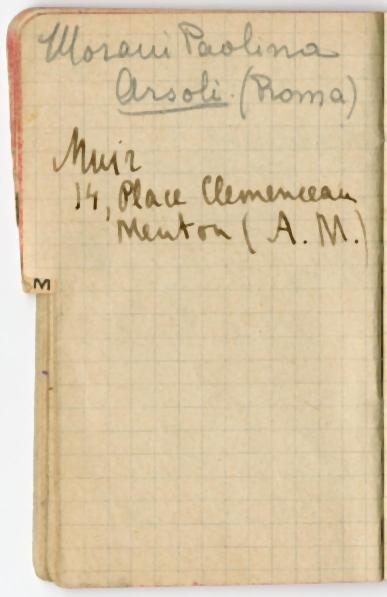 Morani Paolina
Arsoli. (Roma)
Muir
14, Place Clemenceau
Menton (A. M.)
M